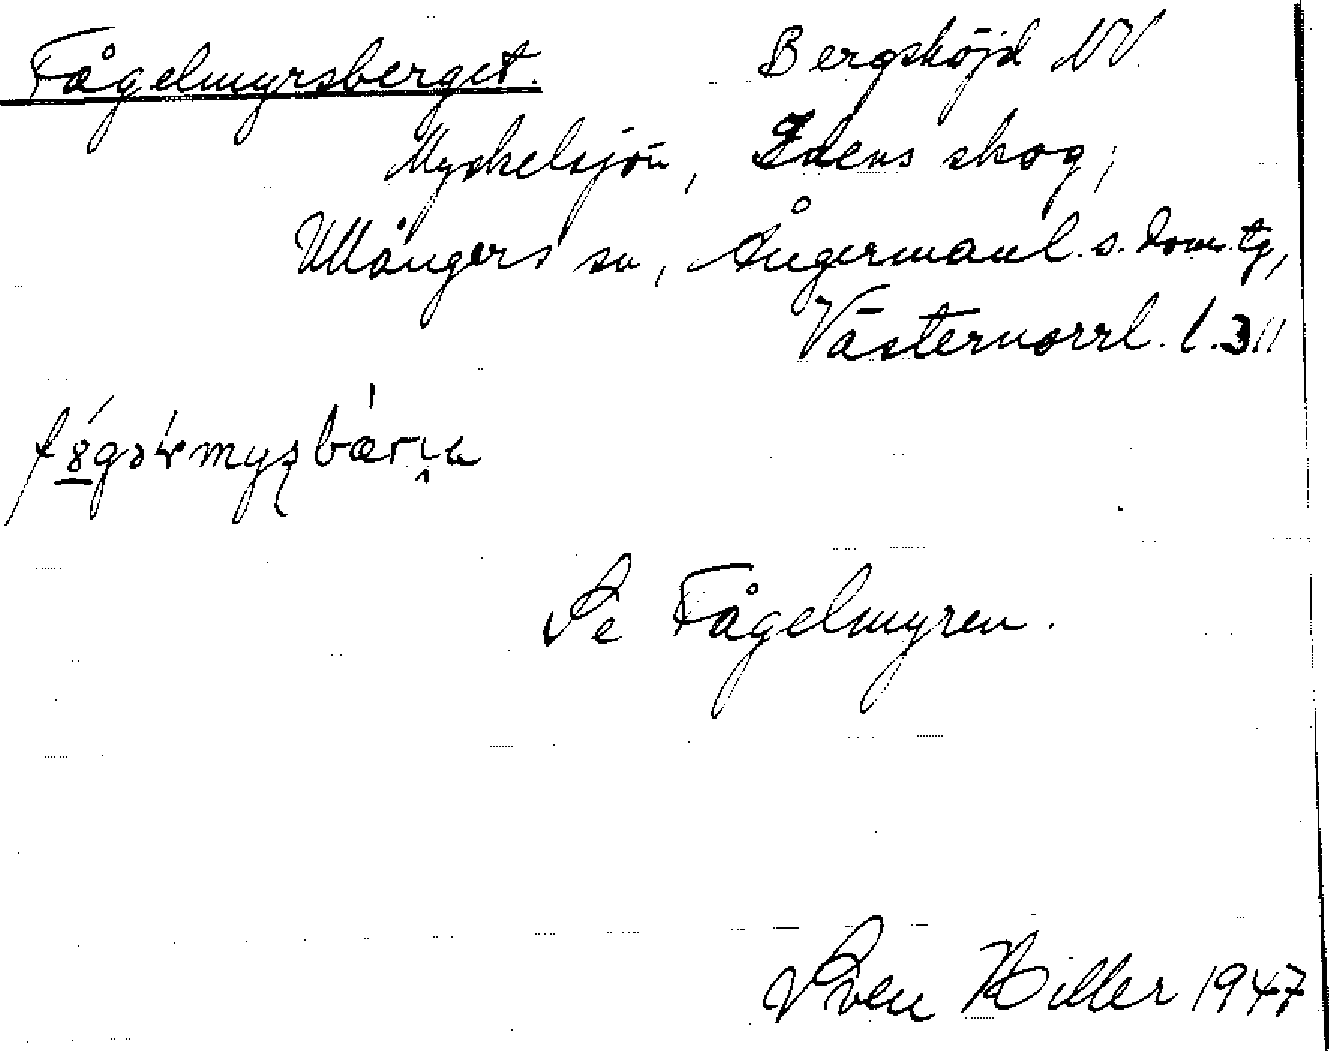 Fågelmyrsberget. Bergshöjd NV
Myckelsjön, Edens skog,
Ullångers sn, Ångermanl. s. dom. tg,
Västernorrl. l.
Se Fågelmyren.
Sven Hiller 1947